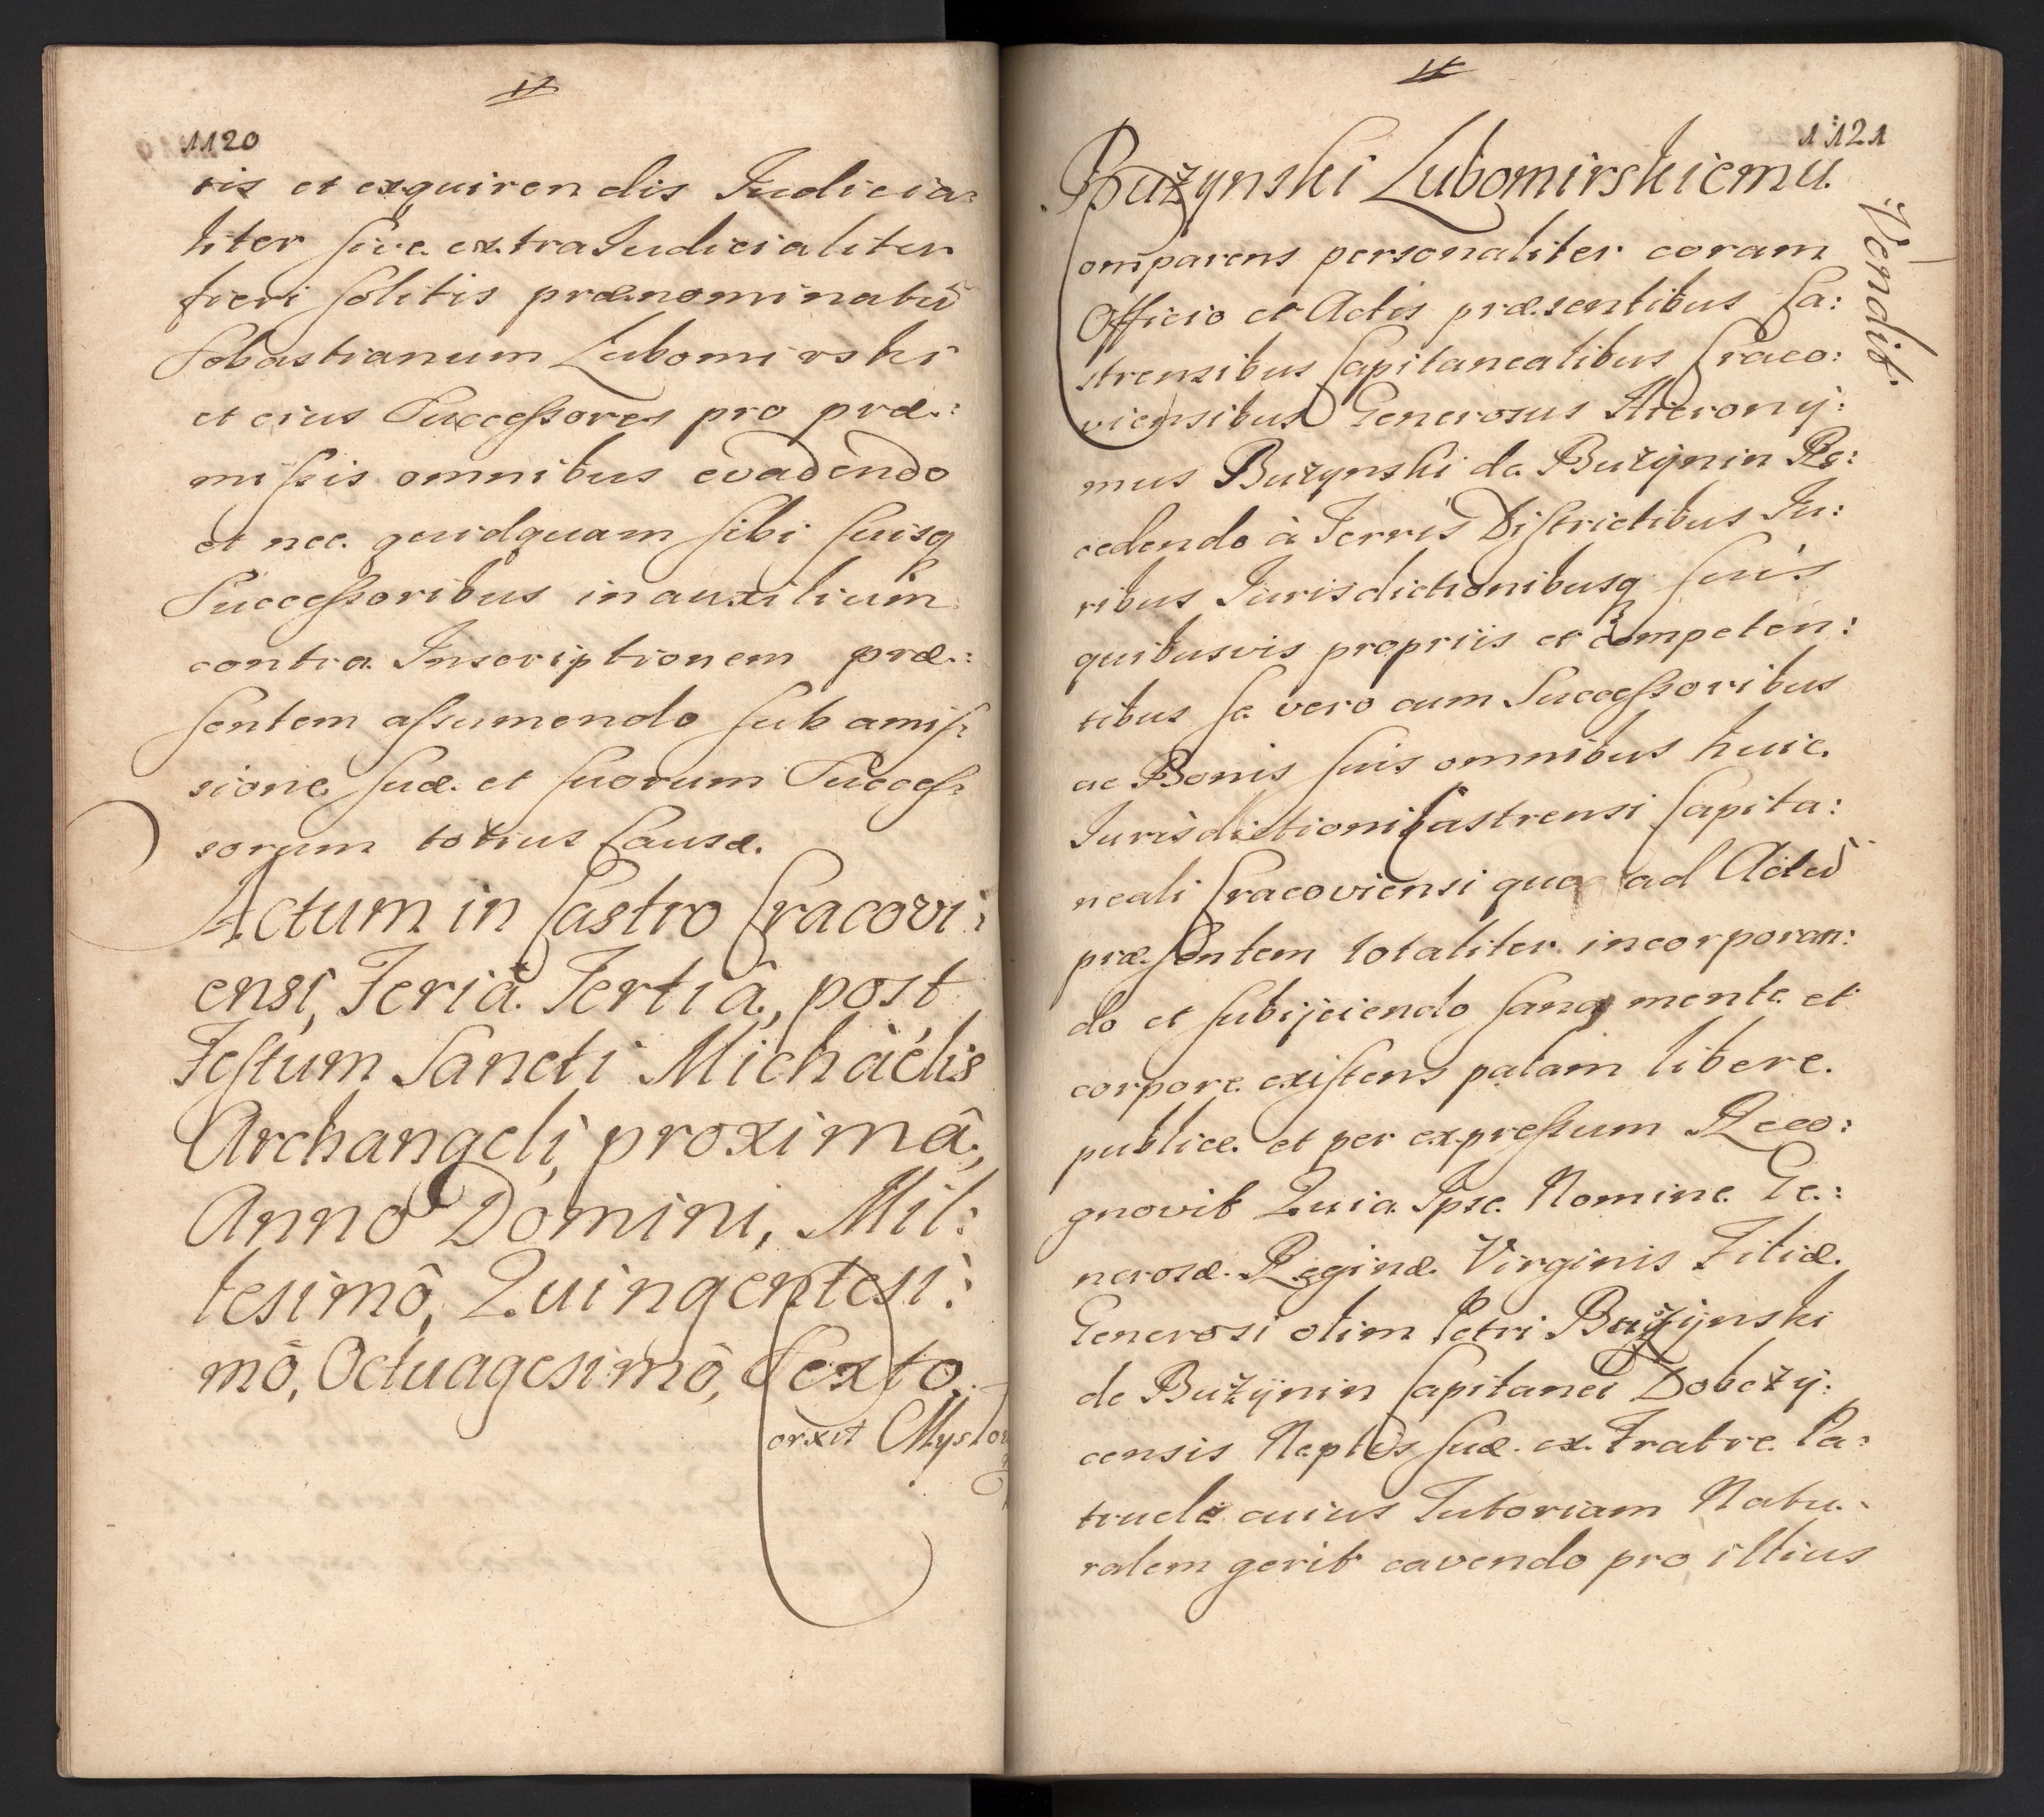 1120
ris et exquirendis Judicia:
liter sive extraJudicialiter
fieri solitis prænominatũ
Sebastianum Lubomirski
et eius Successores pro præ:
missis omnibus evadendo
et nec quidquam sibi suisq
Successoribus in auxilium
contra Inscriptionem præ:
sentem assumendo sub amis:
sione suæ et suorum Succes:
sorum totius Causæ.
Actum in Castro Cracovi:
ensi, Feriâ Tertiâ, post
Festum Sancti Michäelis
Archangeli, proximâ,
Anno Domini, Mil:
lesimô, Quingentesi:
mô, Octuagesimô, Sexto.
1121
Bużynski Lubomirskiemu.
Vendit.
Comparens personaliter coram
Officio et Actis præsentibus Ca:
strensibus Capitanealibus Craco:
viensibus Generosus Hierony:
mus Bużynski de Bużynin Re:
cedendo à Terris Districtibus Ju:
ribus Jurisdictionibusq suis
quibusvis propriis et competen:
tibus se vero cum Successoribus
ac Bonis suis omnibus huic
Jurisdictioni Castrensi Capita:
neali Cracoviensi quo ad Actũ
præsentem totaliter incorporan:
do et subijciendo sana mente et
corpore existens palam libere
publice et per expressum Reco:
gnovit Quia Ipse Nomine Ge:
nerosæ Reginæ Virginis Filiæ
Generosi olim Petri Bużÿnski
de Bużÿnin Capitanei Dobczÿ:
censis Neptis suæ ex Fratre Pa:
truele cuius Tutoriam Natu:
ralem gerit cavendo pro illius